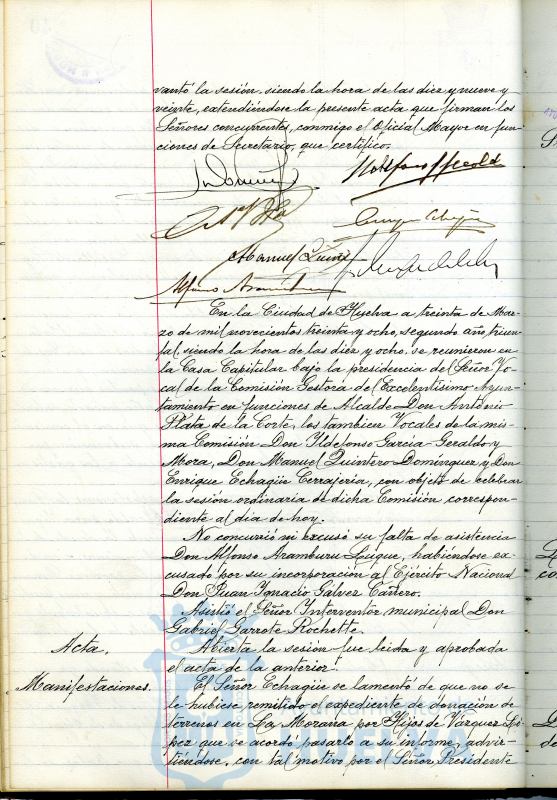 vantó la sesión, siendo la hora de las diez y nueve y
veinte, extendiéndose la presente acta que firman los
Señores concurrentes, conmigo el Oficial Mayor en fun-
ciones de Secretario, que certifico.
Manuel Quint
En la Ciudad de Huelva a treinta de Mar-
zo de mil novecientos treinta y ocho, segundo año triun-
fal, siendo la hora de las diez y ocho, se reunieron en
la Casa Capitular bajo la presidencia del Señor Vo-
cal de la Comisión Gestora del Excelentísimo Ayun-
tamiento en funciones de Alcalde Don Antonio
Plata de la Corte, los tambien Vocales de la mis-
ma Comisión Don Ildefonso García-Geraldo y
Mora, Don Manuel Quintero Domínguez y Don
Enrique Echagüe Cerrajería, con objeto de celebrar
la sesión ordinaria de dicha Comisión correspon-
diente al día de hoy.
No concurrió ni excusó su falta de asistencia
Don Alfonso Aramburu Luque, habiéndose ex-
cusado por su incorporación al Ejército Nacional
Don Juan Ignacio Gálvez Cañero.
Asistió el Señor Interventor municipal Don
Gabriel Garrote Rochette.
Acta. Abierta la sesión fue leida y aprobada
el acta de la anterior.
Manifestaciones. El Señor Echagüe se lamentó de que no se
le hubiese remitido el expediente de donación de
terrenos en La Morana por Hijos de Vázquez Ló-
pez que se acordó pasarlo a su informe, advir-
tiéndose, con tal motivo por el Señor Presidente
HUELVA